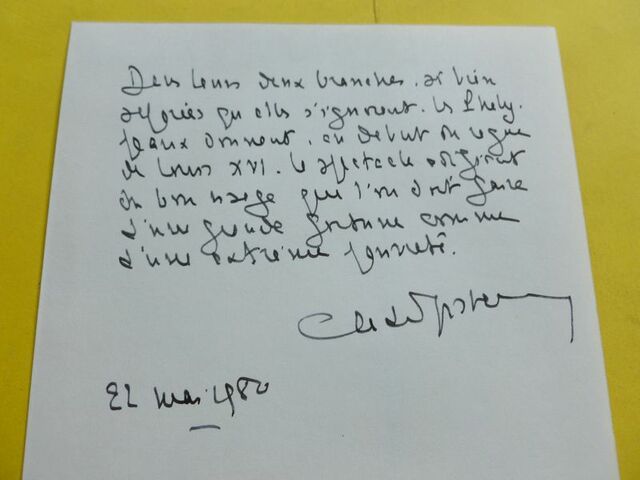 Dans leurs deux branches, si bien
séparées qu'elles s'ignorent, les Phély-
peaux donnent, au début du règne
de Louis XVI, le spectacle
du bon usage que l'on doit faire
d'une grande fortune comme
d'une extrême pauvreté.
22 mai 1980